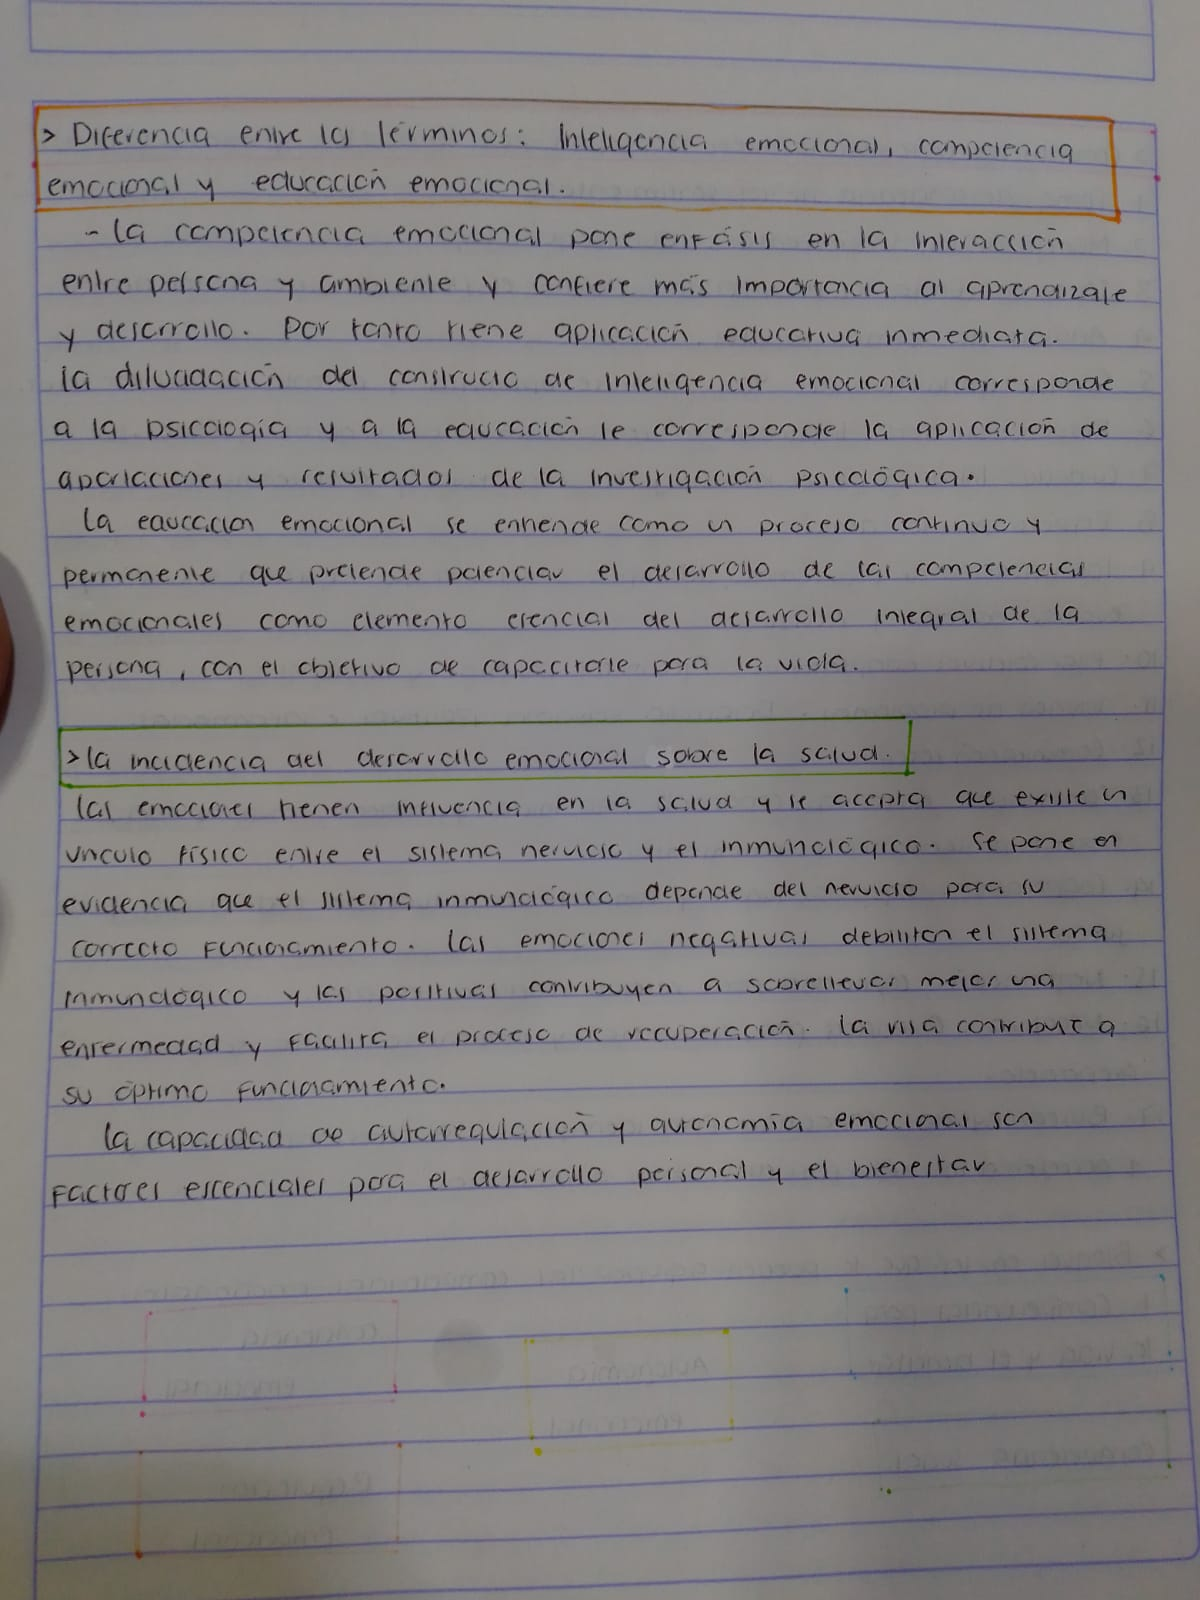 > Diferencia entre los términos: Inteligencia emocional, competencia
emocional y educación emocional.
- La competencia emocional pone enfásis en la interacción
entre persona y ambiente y confiere más importancia al aprendizaje
y desarrollo. Por tanto tiene aplicación educativa inmediata.
La dilucidación del constructo de inteligencia emocional corresponde
a la psicología y a la educación le corresponde la aplicación de
aportaciones y resultados de la investigación psicológica.
La educación emocional se entiende como un proceso continuo y
permanente que pretende potenciar el desarrollo de las competencias
emocionales como elemento esencial del desarrollo integral de la
persona, con el objetivo de capacitarle para la vida.
> La incidencia del desarrollo emocional sobre la salud.
Las emociones tienen influencia en la salud y se acepta que existe un
vínculo físico entre el sistema nervioso y el inmunológico. Se pone en
evidencia que el sistema inmunológico depende del nervioso para su
correcto funcionamiento. Las emociones negativas debilitan el sistema
inmunológico y las positivas contribuyen a sobrellevar mejor una
enfermedad y facilita el proceso de recuperación. La risa contribuye a
su óptimo funcionamiento.
La capacidad de autorregulación y autonomía emocional son
factores escenciales para el desarrollo personal y el bienestar